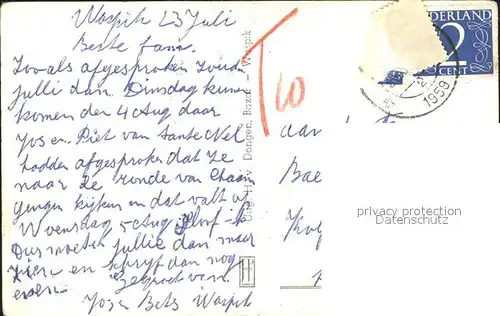 Waspik 23 Juli
Beste fam.
Zooals afgesproken zoud
julli dan Dinsdag kunn
komen den 4 Aug daar
Jos en Piet van tante Nel
hadden afgesproken dat ze
naar de ronde van Chaam
gingen kijken en dat valt op
Woensdag 5 Aug geloof ik
Dus moeten jullie dan maar
zien en schryf dan nog
even. Gegroet van
Jos en Bets Waspik
Uitg. H. v. Dongen, Bazar Waspik
T 10
NEDERLAND
2
CENT
1959
aan
Bae
privacy protection
Datenschutz